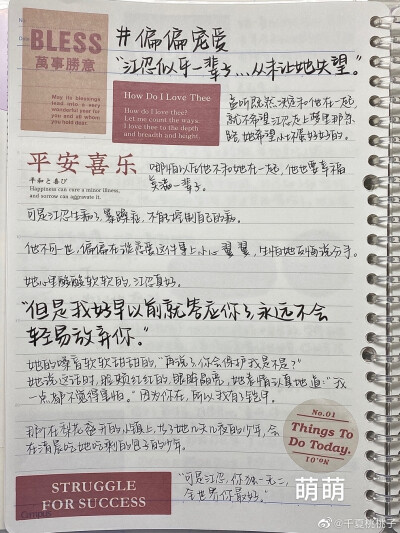 No.
Date
BLESS
萬事勝意
May its blessings
lead into a very
wonderful year for
you and all whom
you hold dear.
#偏偏宠爱
"江忍似乎一辈子...从未让她失望。"
How Do I Love Thee
How do I love thee?
Let me count the ways.
I love thee to the depth
and breadth and height.
孟听既然决定和他在一起,
就不希望江忍走上梦里那条
路,她希望他好好的。
平安喜乐
平和と喜び
Happiness can cure a minor illness,
and sorrow can aggravate it.
哪怕以后他不和她在一起,他也要幸福
美满一辈子。
可是江忍生病了,暴躁症,不能控制自己的病。
他不可一世,偏偏在谈恋爱这件事上小心翼翼,生怕她反悔说分手。
她心里酸酸软软的,江忍真好。
"但是我好早以前就答应你了,永远不会
轻易放弃你。"
她的嗓音软软甜甜的,"再说了你会保护我是不是?"
她说这话时,脸颊红红的,眼睛晶亮,她羞怯认真地道:"我
一点都不觉得害怕。"因为你在,所以我有了铠甲。
那个在梨花盛开的小镇上,守了她几天几夜的少年,会
在清晨吃她吃剩的包子的少年。
No.01
Things To
Do Today.
"可是江忍,你独一无二,
全世界你最好。"
STRUGGLE
FOR SUCCESS
Campus
萌萌
@千夏桃桃子